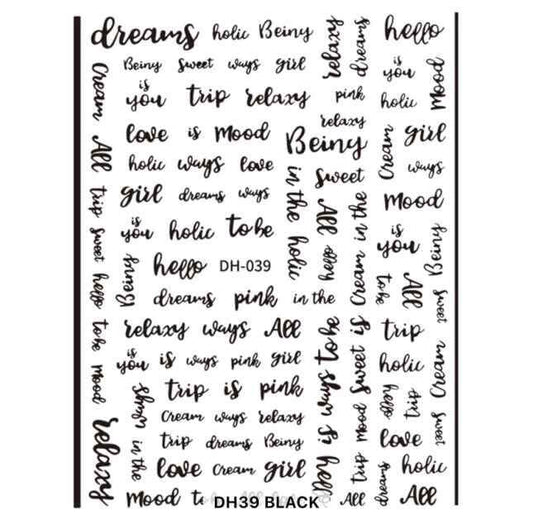 dreams holic Beiny
relaxy
dreams
hello
Beiny Sweet ways girl
is you
Mood
Cream
is you trip relaxy
pink
holic
relaxy
love is Mood
Beiny
Cream
girl
All
holic ways love
Sweet
ways
in the holic
trip
girl dreams ways
All
Cream in the
Mood
is you holic to be
is you
Beiny
sweet
hello DH-039
hello
Beiny
to be
All
hello
dreams pink in the
sweet
to be
relaxy ways All
hey is ways to be
Sweet is
trip
is you is ways pink girl
holic
Cream
mood
trip is pink
ways
hello
trip
Mood
relaxy
Cream ways relaxy
in the
love
sweet
trip dreams Beiny
trip
love Cream girl
dreams
holic
Mood
DH39 BLACK
All
All